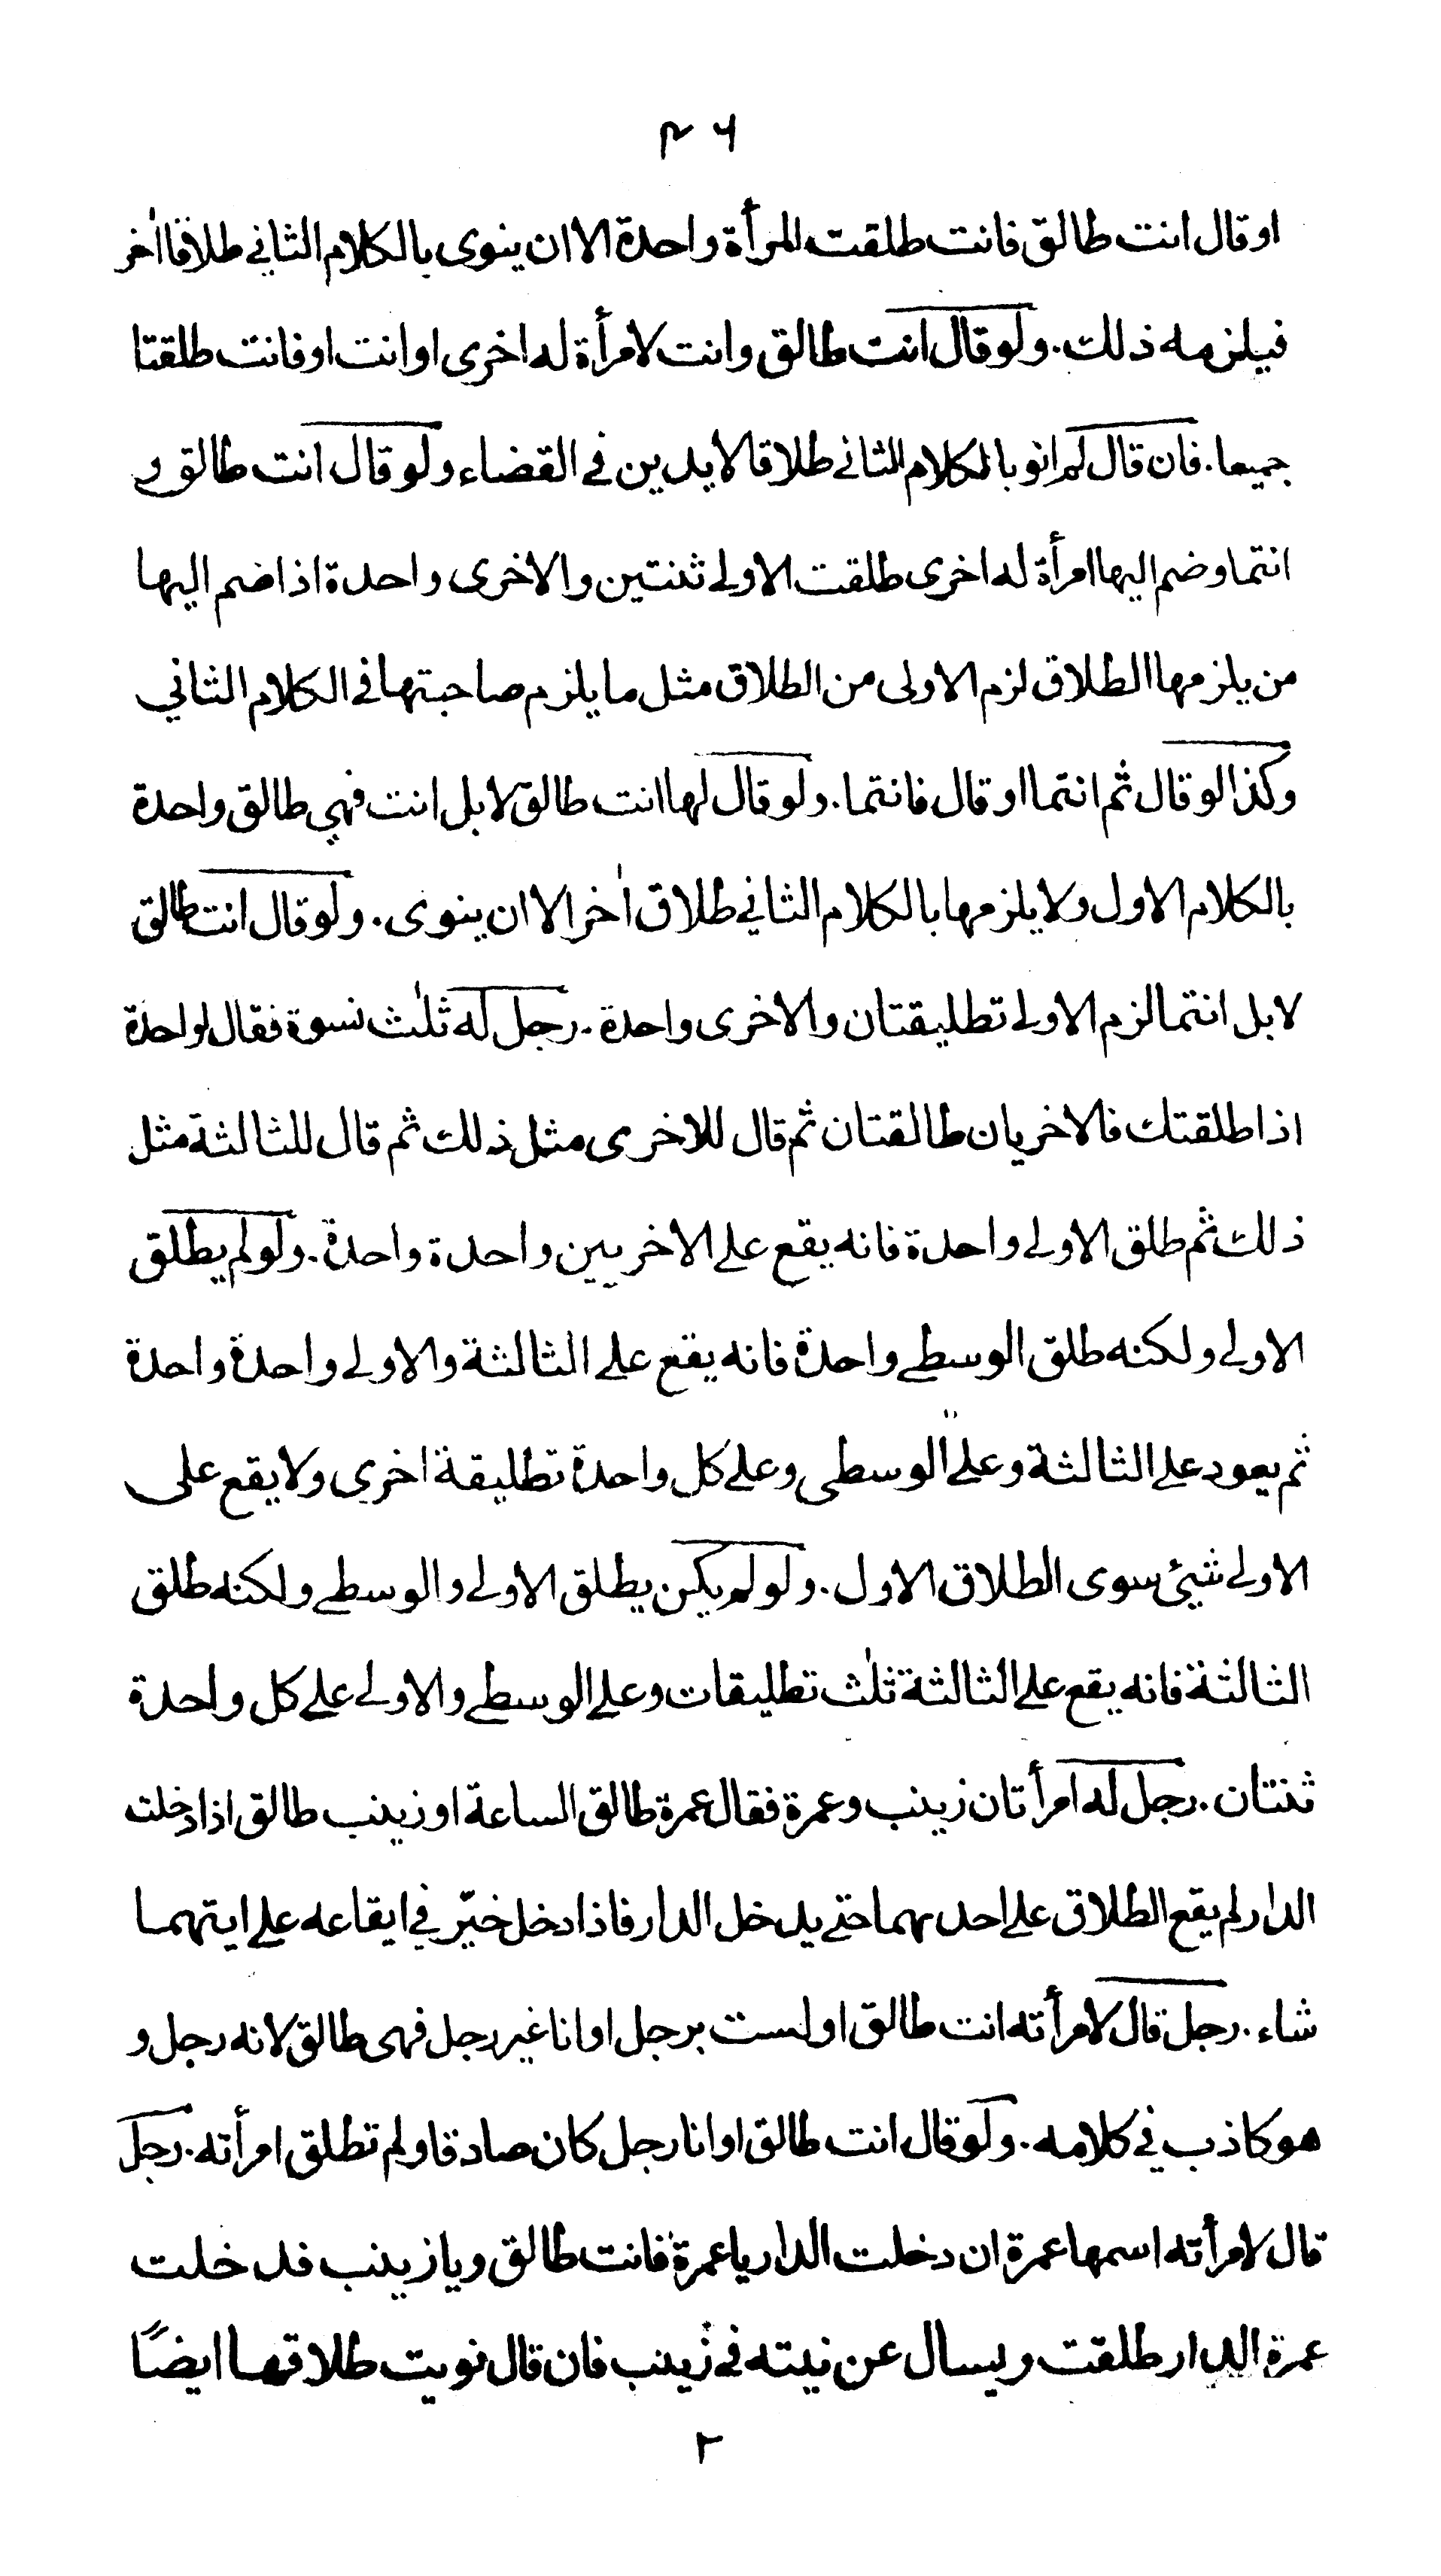 ٤٦
او قال انت طالق فانت طلقت المرأة واحدة الا ان ينوى بالكلام الثاني طلاقا اٰخر
فيلزمه ذلك. ولو قال انت طالق وانت لامرأة له اخرى او انت او فانت طلقتا
جميعا. فان قال لم انو بالكلام الثاني طلاقا لا يدين في القضاء ولو قال انت طالق و
انتما وضم اليها امرأة له اخرى طلقت الاولى ثنتين والاخرى واحدة اذا ضم اليها
من يلزمها الطلاق لزم الاولى من الطلاق مثل ما يلزم صاحبتها في الكلام الثاني
وكذا لو قال ثم انتما او قال فانتما. ولو قال لها انت طالق لا بل انت فهي طالق واحدة
بالكلام الاول ولا يلزمها بالكلام الثاني طلاق اٰخر الا ان ينوى. ولو قال انت طالق
لا بل انتما لزم الاولى تطليقتان والاخرى واحدة. رجل له ثلٰث نسوة فقال لواحدة
اذا طلقتك فالاخريان طالقتان ثم قال للاخرى مثل ذلك ثم قال للثالثة مثل
ذلك ثم طلق الاولى واحدة فانه يقع على الاخريين واحدة واحدة. ولو لم يطلق
الاولى ولكنه طلق الوسطى واحدة فانه يقع على الثالثة والاولى واحدة واحدة
ثم يعود على الثالثة وعلى الوسطى وعلى كل واحدة تطليقة اخرى ولا يقع على
الاولى شيئ سوى الطلاق الاول. ولو لم يكن يطلق الاولى والوسطى ولكنه طلق
الثالثة فانه يقع على الثالثة ثلٰث تطليقات وعلى الوسطى والاولى على كل واحدة
ثنتان. رجل له امرأتان زينب وعمرة فقال عمرة طالق الساعة او زينب طالق اذا دخلت
الدار لم يقع الطلاق على احدىهما حتى يدخل الدار فاذا دخل خيّر في ايقاعه على ايتهما
شاء. رجل قال لامرأته انت طالق او لست برجل او انا غير رجل فهي طالق لانه رجل و
هو كاذب في كلامه. ولو قال انت طالق او انا رجل كان صادقا ولم تطلق امرأته. رجل
قال لامرأته اسمها عمرة ان دخلت الدار يا عمرة فانت طالق ويا زينب فدخلت
عمرة الدار طلقت ويسال عن نيته في زينب فان قال نويت طلاقها ايضًا
٢